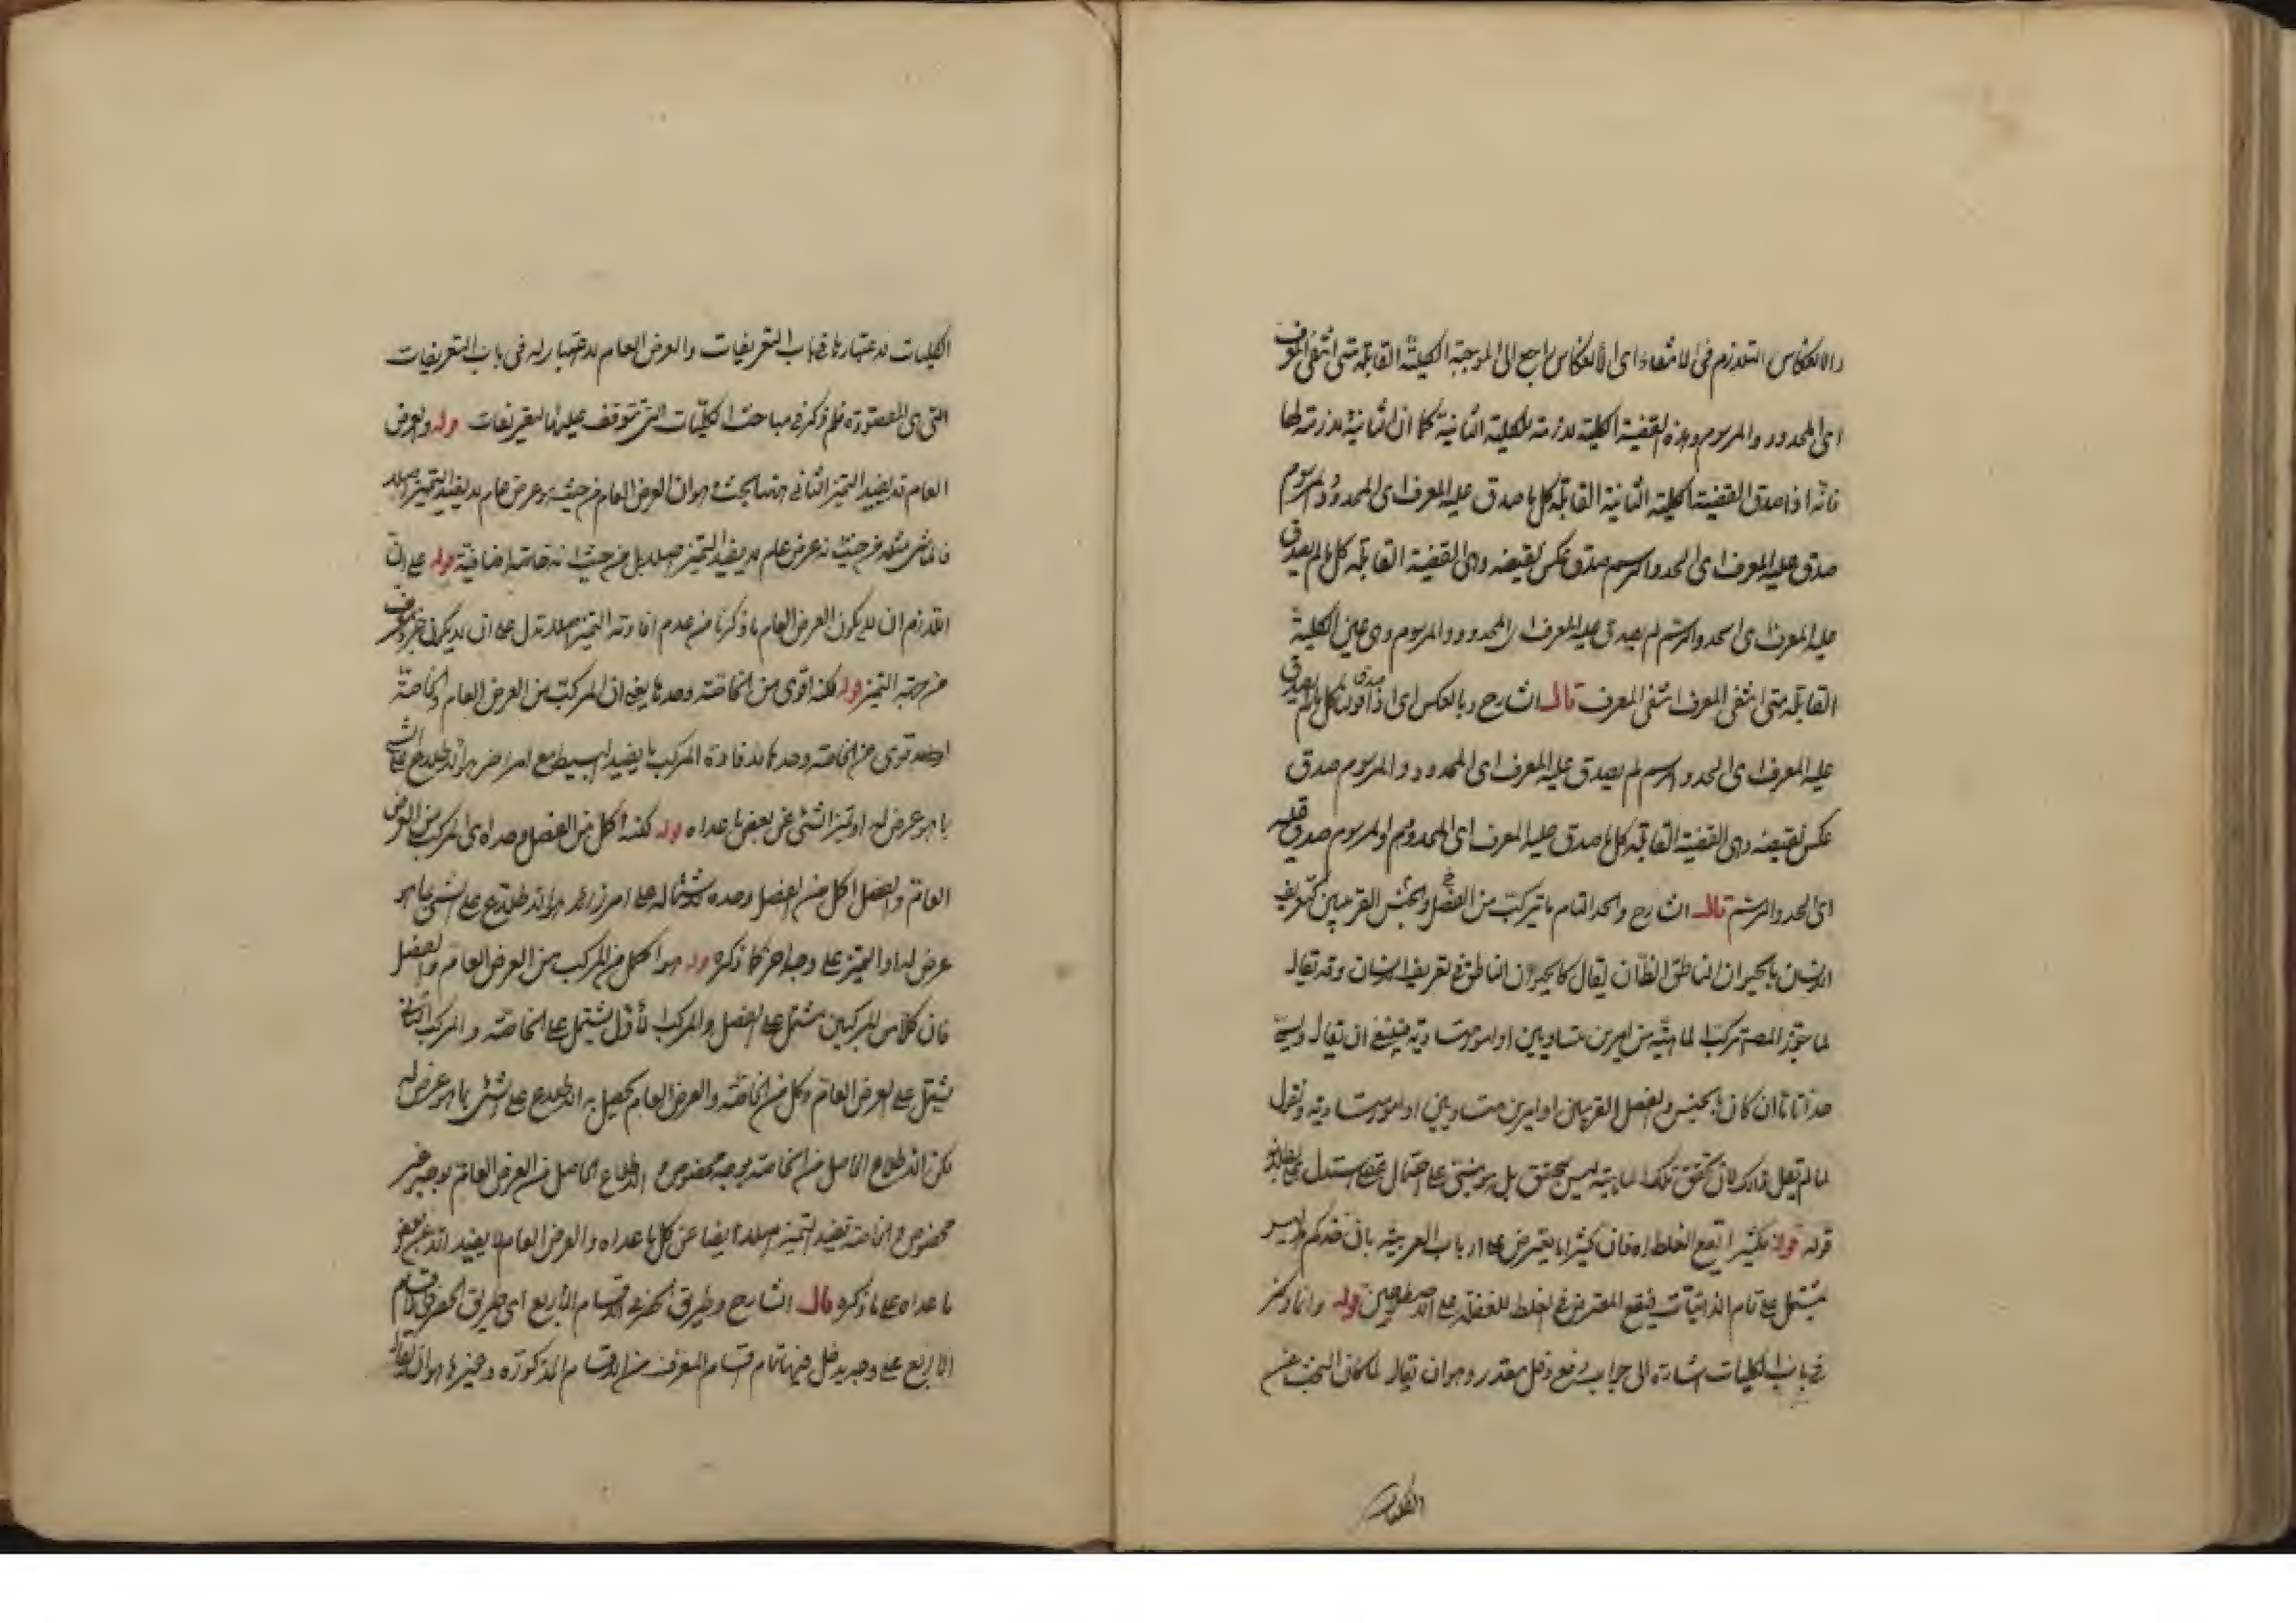 والانعكاس التلازم فى الانتفاء اى الانعكاس راجع الى الموجبة الكلية القائلة متى انتفى المعرف
اى المحدود والمرسوم وهذه القضية الكلية لازمة للكلية الثانية كما ان الثانية لازمة لها
فانه اذا صدق القضية الكلية الثانية القائلة كل ما صدق عليه المعرف اى المحدود والمرسوم
صدق عليه المعرف اى الحد والرسم صدق عكس نقيضه وهى القضية القائلة كل ما لم يصدق
عليه المعرف اى الحد والرسم لم يصدق عليه المعرف اى المحدود والمرسوم وهى عين الكلية
القائلة متى انتفى المعرف انتفى المعرف قال الشارح وبالعكس اى اذا صدق قولنا كل ما لم يصدق
عليه المعرف اى الحد والرسم لم يصدق عليه المعرف اى المحدود والمرسوم صدق
عكس نقيضه وهى القضية القائلة كل ما صدق عليه المعرف اى المحدود والمرسوم صدق عليه
اى الحد والرسم قال الشارح والحد التام ما تركب من الفصل والجنس القريبين كتعريف
الانسان بالحيوان الناطق الظان يقال كالحيوان الناطق فى تعريف الانسان وقد يقال
لما جوز المصنف تركب الماهية من امرين متساويين او امور متساوية فينبغى ان يقال ويسمى
حدا تاما ان كان بالجنس والفصل القريبين او امرين متساويين او امور متساوية ونقول
انما لم يقل ذلك لان تحقق تلك الماهية ليس بمحقق بل هو مبنى على احتمال عقلى استدل على
قوله فكثيرا يقع الغلط اه فان كثيرا ما يعترض على ارباب العربية بان حدكم ليس
مشتمل على تمام الذاتيات فيقع المعترض فى الغلط للغفلة على الاصطلاحين قوله وانما ذكر
فى باب الكليات اشارة الى جواب دفع دخل مقدر وهو ان يقال لما كان البحث عن
الكليات
الكليات لاعتبارها فى باب التعريفات والعرض العام لا اعتبار له فى باب التعريفات
التى هى المقصودة فلم ذكر فى مباحث الكليات التى تتوقف عليها التعريفات قوله والعرض
العام لا يفيد التميز الثانى ههنا بحث وهو ان العرض العام من حيث هو عرض عام لا يفيد التميز اصلا
فالماشى مثلا من حيث انه عرض عام لا يفيد التميز اصلا بل من حيث انه خاصة اضافية قوله على ان
اللازم ان لا يكون العرض العام ما ذكرنا من عدم افادته التميز اصلا تدل على ان لا يكون جزء معرف
من جهة التميز قوله لكنه اقوى من الخاصة وحدها يعنى ان المركب من العرض العام والخاصة
اقوى من الخاصة وحدها لافادة المركب ما يفيد البسيط مع امر اخر هو الاطلاع على الشئ
بما هو عرض له او تميز الشئ عن بعض ما عداه قوله لكنه اكمل من الفصل وحده اى المركب من العرض
العام والفصل اكمل من الفصل وحده لاشتماله على امر زائد هو الاطلاع على الشئ بما هو
عرض له او التميز على وجه اخر كما ذكره قوله هو اكمل من المركب من العرض العام والفصل
فان كلا من المركبين مشتمل على الفصل والمركب الاول يشتمل على الخاصة والمركب الثانى
يشتمل على العرض العام وكل من الخاصة والعرض العام يحصل به الاطلاع على الشئ بما هو عرض له
لكن الاطلاع الحاصل من الخاصة بوجه مخصوص والاطلاع الحاصل من العرض العام بوجه غير
مخصوص والخاصة تفيد التميز اصلا ايضا عن كل ما عداه والعرض العام لا يفيد الا عن بعض
ما عداه على ما ذكره قال الشارح وطريق الحصر فى الاقسام الاربع اى طريق الحصر فى الاقسام
الاربع على وجه يدخل فيها تمام اقسام المعرف من الاقسام المذكورة وغيرها هو ان يقال